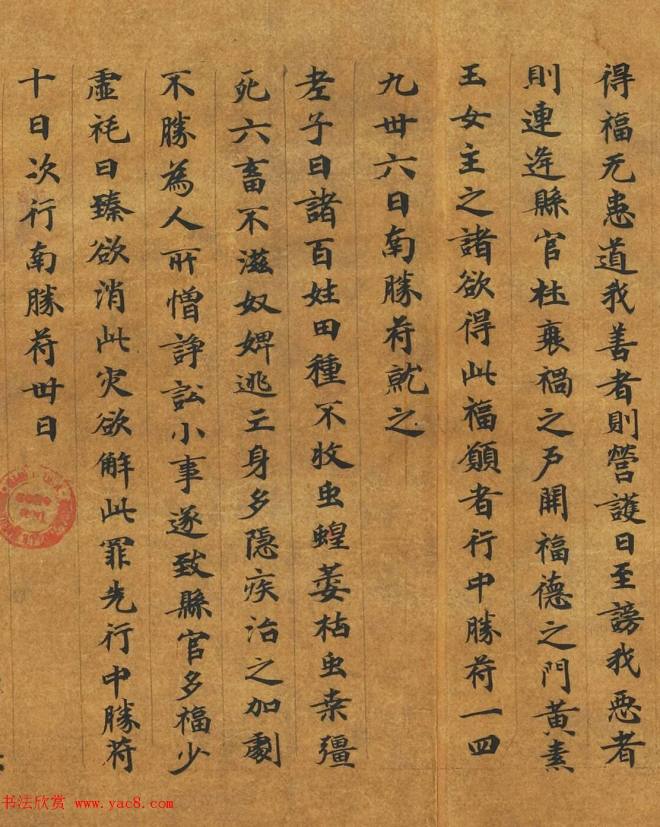 得福无患道我善者則營護日至謗我惡者
則連逄縣官杜衰禍之户開福德之門黄素
玉女主之諸欲得此福願者行中勝苻一四
九卅六日南勝苻就之
老子曰諸百姓田種不收虫蝗萎枯虫桒殭
死六畜不滋奴婢逃亡身多隱疾治之加劇
不勝為人所憎諍訟小事遂致縣官多福少
虛耗日臻欲消此灾欲解此罪先行中勝苻
十日次行南勝苻卅日
书法欣赏 www.yac8.com